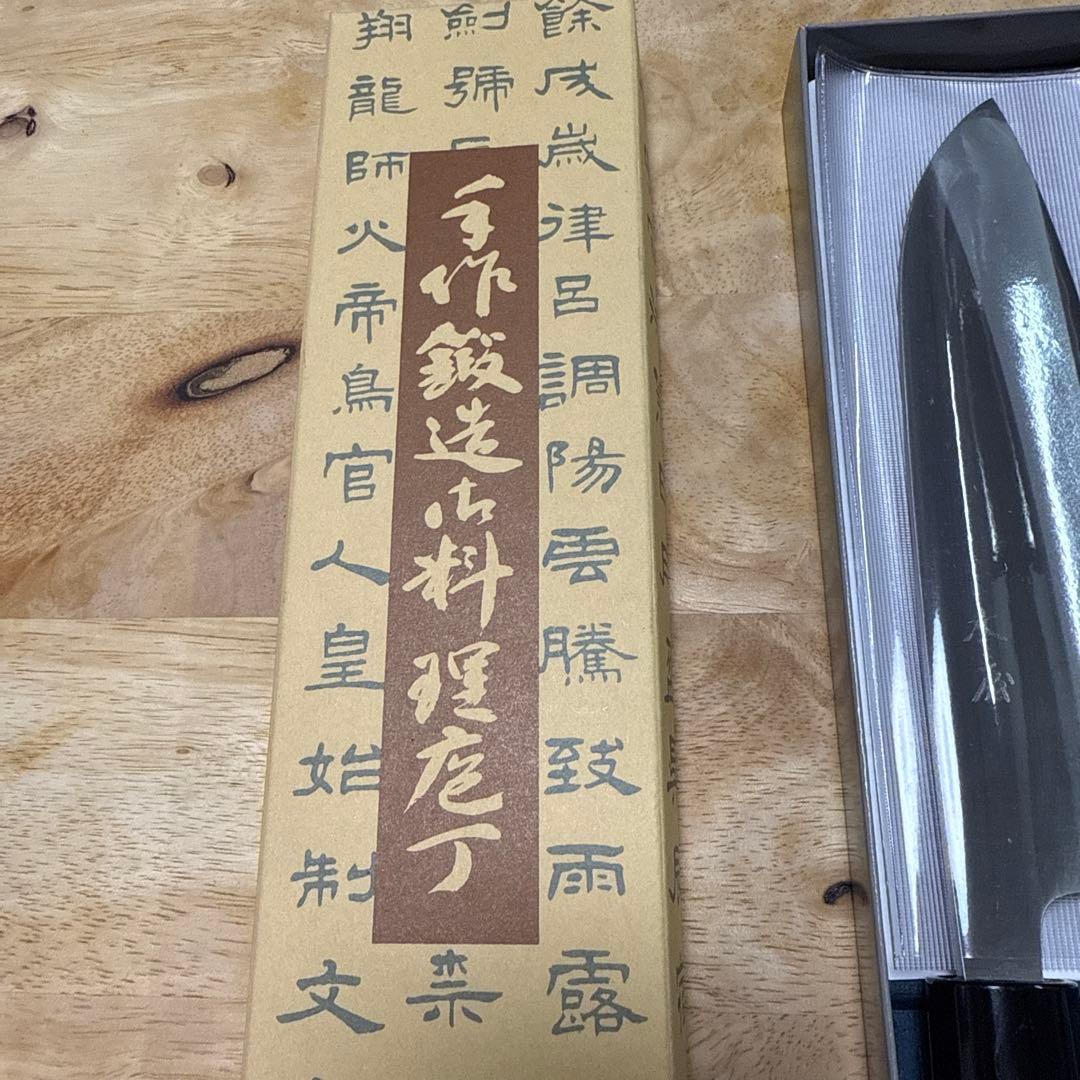 餘成歲律呂調陽雲騰致雨露
劍號
柰
手作鍛造御料理庖丁
翔龍師火帝鳥官人皇始制文